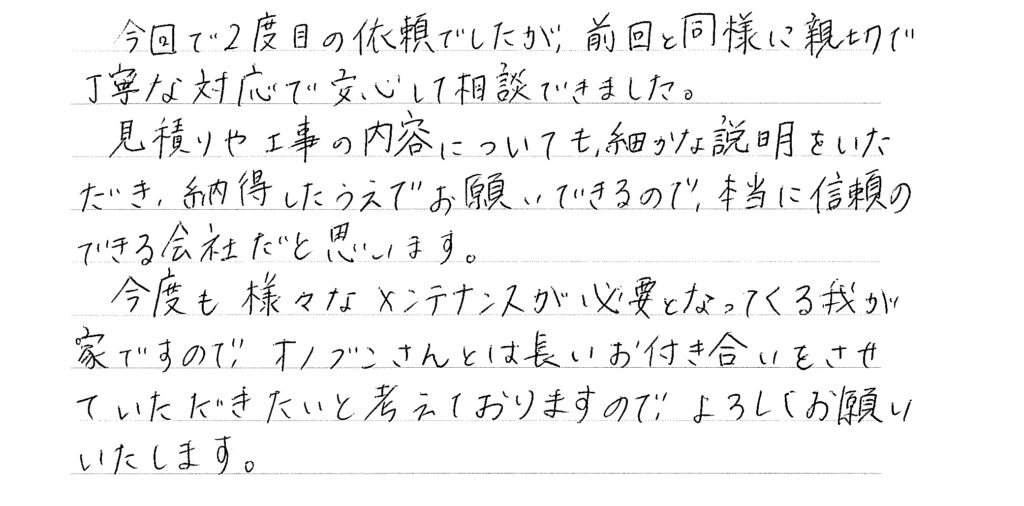 今回で2度目の依頼でしたが、前回と同様に親切で
丁寧な対応で安心して相談できました。
見積りや工事の内容についても、細かな説明をいた
だき、納得したうえでお願いできるので、本当に信頼の
できる会社だと思います。
今度も様々なメンテナンスが必要となってくる我が
家ですので、オノブンさんとは長いお付き合いをさせ
ていただきたいと考えておりますので、よろしくお願い
いたします。